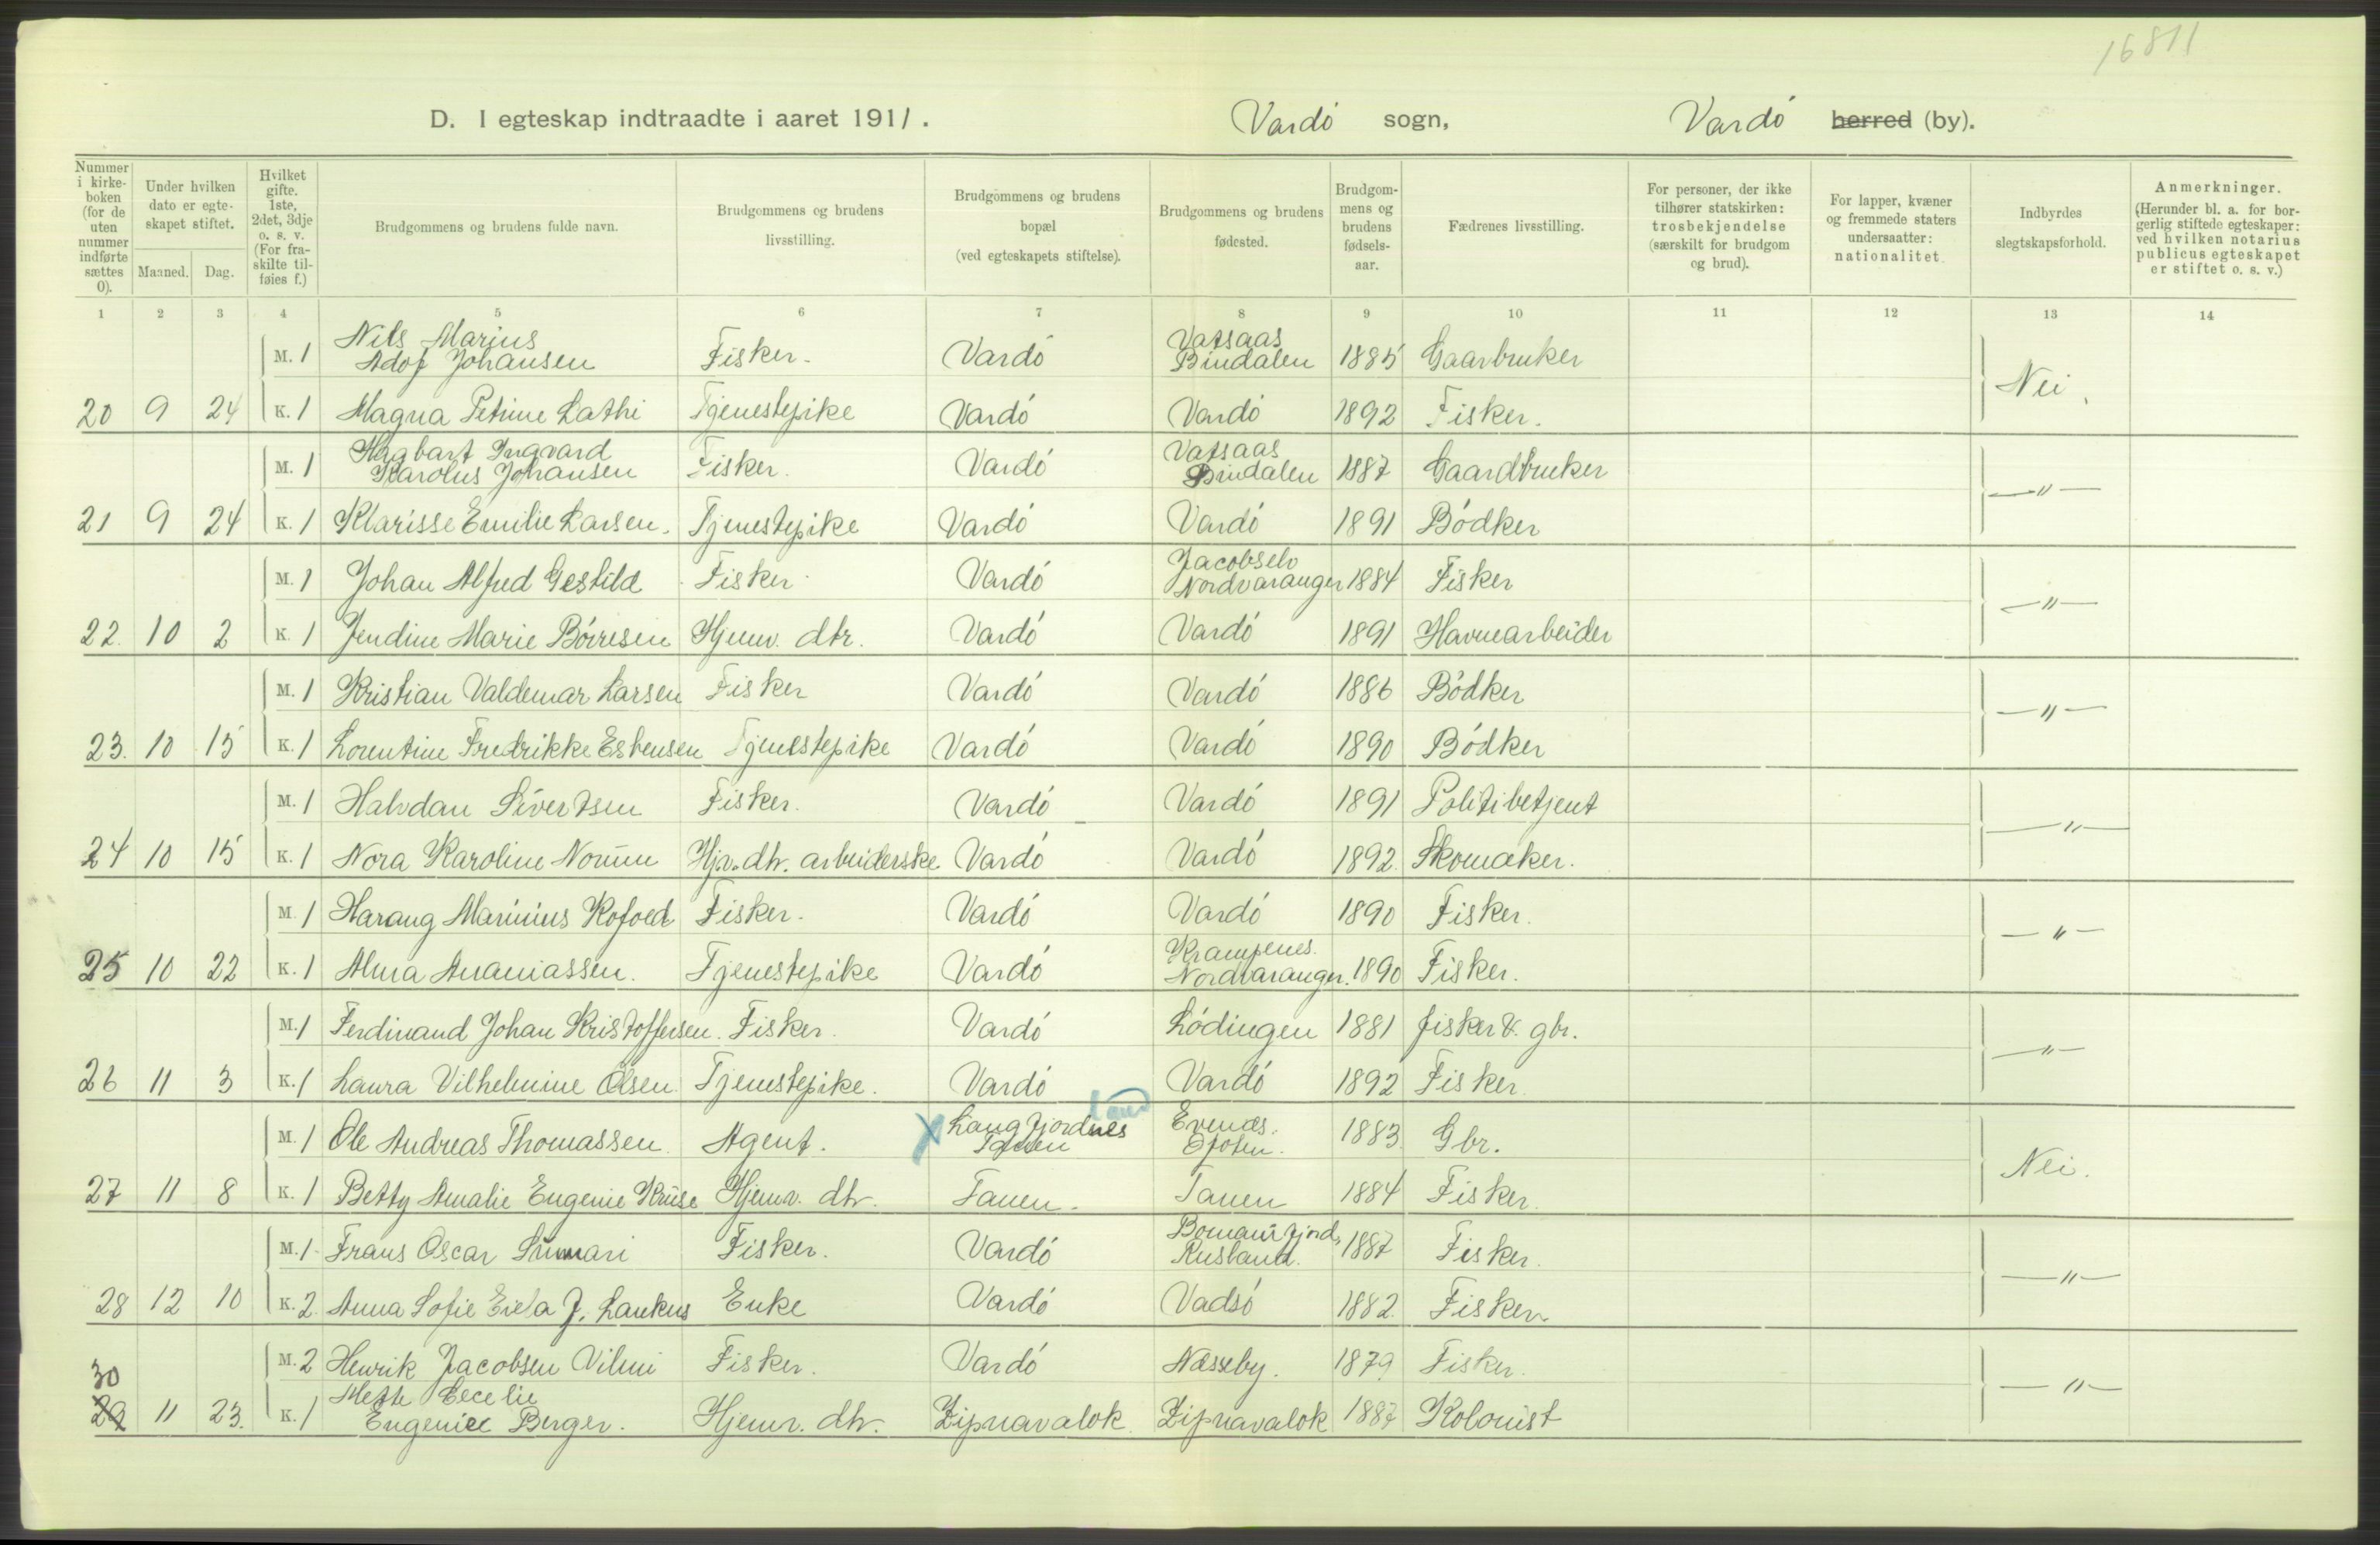 16811
D. I egteskap indtraadte i aaret 1911. Vardó sogn, Vardó herred (by).
Nummer i kirke-boken (for de uten nummer indførte sættes 0).
Under hvilken dato er egte-skapet stiftet.
Maaned. Dag.
Hvilket gifte. 1ste, 2det, 3dje o. s. v. (For fra-skilte til-føies f.)
Brudgommens og brudens fulde navn.
Brudgommens og brudens livsstilling.
Brudgommens og brudens bopæl (ved egteskapets stiftelse).
Brudgommens og brudens fødested.
Brudgom-mens og brudens fødsels-aar.
Fædrenes livsstilling.
For personer, der ikke tilhører statskirken: trosbekjendelse (særskilt for brudgom og brud).
For lapper, kvæner og fremmede staters undersaatter: nationalitet.
Indbyrdes slegtskapsforhold.
Anmerkninger. (Herunder bl. a. for bor-gerlig stiftede egteskaper: ved hvilken notarius publicus egteskapet er stiftet o. s. v.)
1 2 3 4 5 6 7 8 9 10 11 12 13 14
M. 1 Nils Marius Adof Johansen Fisker. Vardó Vatsaas Bindalen 1885 Gaarbruker
Nei.
20 9 24 K. 1 Magna Petrine Lathi Tjenestepike Vardó Vardó 1892 Fisker.
M. 1 Hagbart Ingvard Karolus Johansen Fisker. Vardó Vatsaas Bindalen 1887 Gaardbruker
—"—
21 9 24 K. 1 Klarisse Emilie Larsen. Tjenestepike Vardó Vardó 1891 Bódker
M. 1 Johan Alfred Gestild Fisker Vardó Jacobselv Nordvaranger 1884 Fisker
—"—
22. 10 2 K. 1 Jendine Marie Börresen Hjemv. dtr. Vardó Vardó 1891 Havnearbeider
M. 1 Kristian Valdemar Larsen Fisker Vardó Vardó 1886 Bódker
—"—
23. 10 15 K. 1 Lorentine Fredrikke Esbensen Tjenestepike Vardó Vardó 1890 Bódker
M. 1 Halvdan Sivertsen Fisker. Vardó Vardó 1891 Politibetjent
—"—
24 10 15 K. 1 Nora Karoline Norum Hjv. dtr. arbeiderske Vardó Vardó 1892. Skomaker.
M. 1 Harang Marinius Kofoed Fisker. Vardó Vardó 1890 Fisker.
—"—
25 10 22 K. 1 Alma Ananiassen. Tjenestepike Vardó Krampenes. Nordvaranger. 1890 Fisker.
M. 1 Ferdinand Johan Kristoffersen. Fisker. Vardó Lódingen 1881 fisker &. gbr.
—"—
26 11 3 K. 1 Laura Vilhelmine Olsen. Tjenestepike. Vardó Vardó 1892 Fisker.
M. 1 Ole Andreas Thomassen. Agent. X Langfjordnes Tanen Evenæs. Ofoten. 1883. Gbr.
Nei.
27 11 8 K. 1 Betty Amalie Eugenie Krüse Hjemv. dtr. Tanen. Tanen 1884 Fisker.
M. 1 Frans Oscar Fisker. Vardó Rusland. 1887 Fisker.
—"—
28 12 10 K. 2. Anna Sofie J. Laukus Enke Vardó Vadsó 1882. Fisker
M. 2 Henrik Jacobsen Vilmi Fisker. Vardó Næsseby. 1879 Fisker.
—"—
30 29 11 23. K. 1 Mette Cecelie Eugenie Berger. Hjemv. dtr. Zipnavalok. Zipnavalok 1887 Kolonist